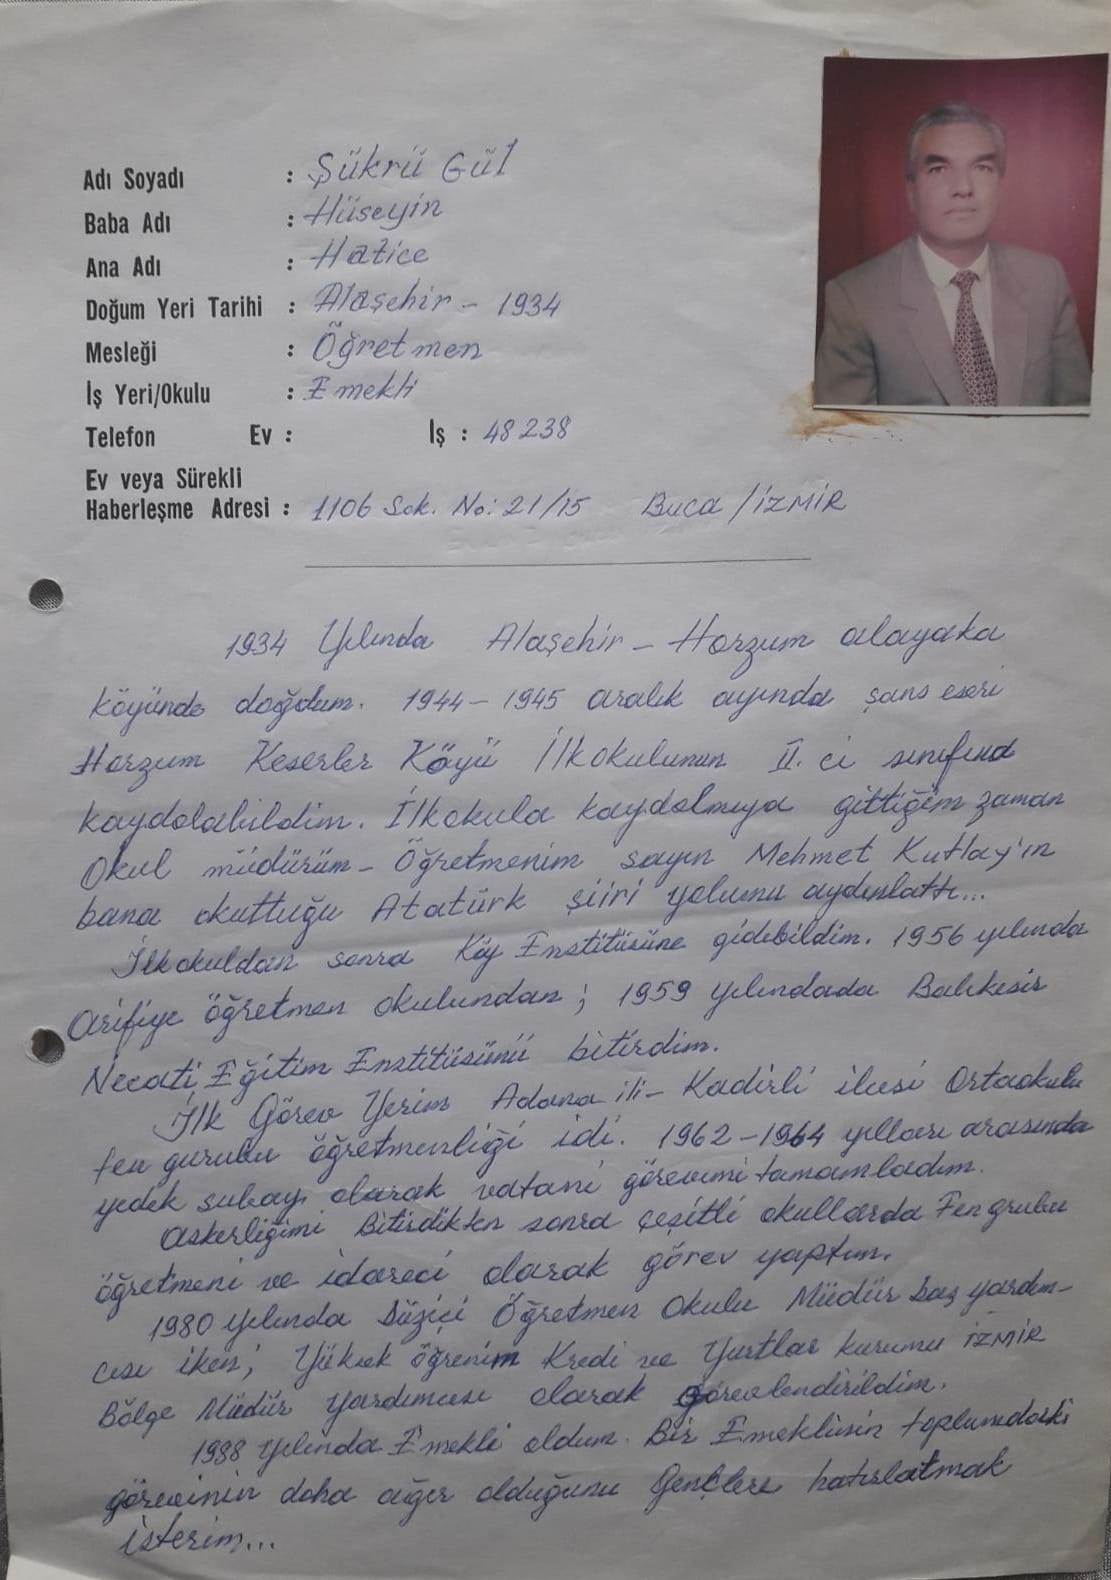 Adı Soyadı : Şükrü Gül
Baba Adı : Hüseyin
Ana Adı : Hatice
Doğum Yeri Tarihi : Alaşehir - 1934
Mesleği : Öğretmen
İş Yeri/Okulu : Emekli
Telefon Ev : İş : 48238
Ev veya Sürekli
Haberleşme Adresi : 1106 Sok. No: 21/15 Buca / İZMİR
1934 Yılında Alaşehir - Horzum alayaka
köyünde doğdum. 1944 - 1945 aralık ayında şans eseri
Horzum Keserler Köyü İlkokulunun II. ci sınıfına
kaydolabildim. İlkokula kaydolmaya gittiğim zaman
Okul müdürüm - Öğretmenim sayın Mehmet Kutlay'ın
bana okuttuğu Atatürk şiiri yolumu aydınlattı...
İlkokuldan sonra Köy Enstitüsüne gidebildim. 1956 yılında
Arifiye öğretmen okulundan ; 1959 yılındada Balıkesir
Necati Eğitim Enstitüsünü bitirdim.
İlk Görev Yerim Adana ili - Kadirli ilcesi Ortaokulu
fen gurubu öğretmenliği idi. 1962 - 1964 yılları arasında
yedek subay olarak vatani görevimi tamamladım.
Askerliğimi Bitirdikten sonra çeşitli okullarda Fen grubu
öğretmeni ve idareci olarak görev yaptım.
1980 yılında Düziçi Öğretmen Okulu Müdür Baş yardım-
cısı iken ; Yüksek öğrenim Kredi ve Yurtlar kurumu İZMİR
Bölge Müdür Yardımcısı olarak görevlendirildim.
1988 yılında Emekli oldum. Bir Emeklinin toplumdaki
görevinin daha ağır olduğunu Gençlere hatırlatmak
isterim...